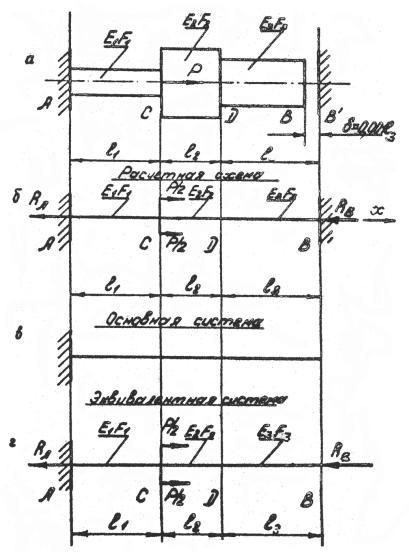 а
E₁F₁
E₂F₂
E₃F₃
P
A
C
D
B
B'
δ=0,001l₃
l₁
l₂
l
Расчетная схема
б
Rₐ
E₁F₁
P/2
E₂F₂
E₃F₃
R_B
x
A
C
P/2
D
B
l₁
l₂
l₃
Основная система
в
Эквивалентная система
г
Rₐ
E₁F₁
P/2
E₂F₂
E₃F₃
R_B
A
C
P/2
D
B
l₁
l₂
l₃